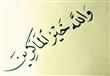 والله خير الماكرين